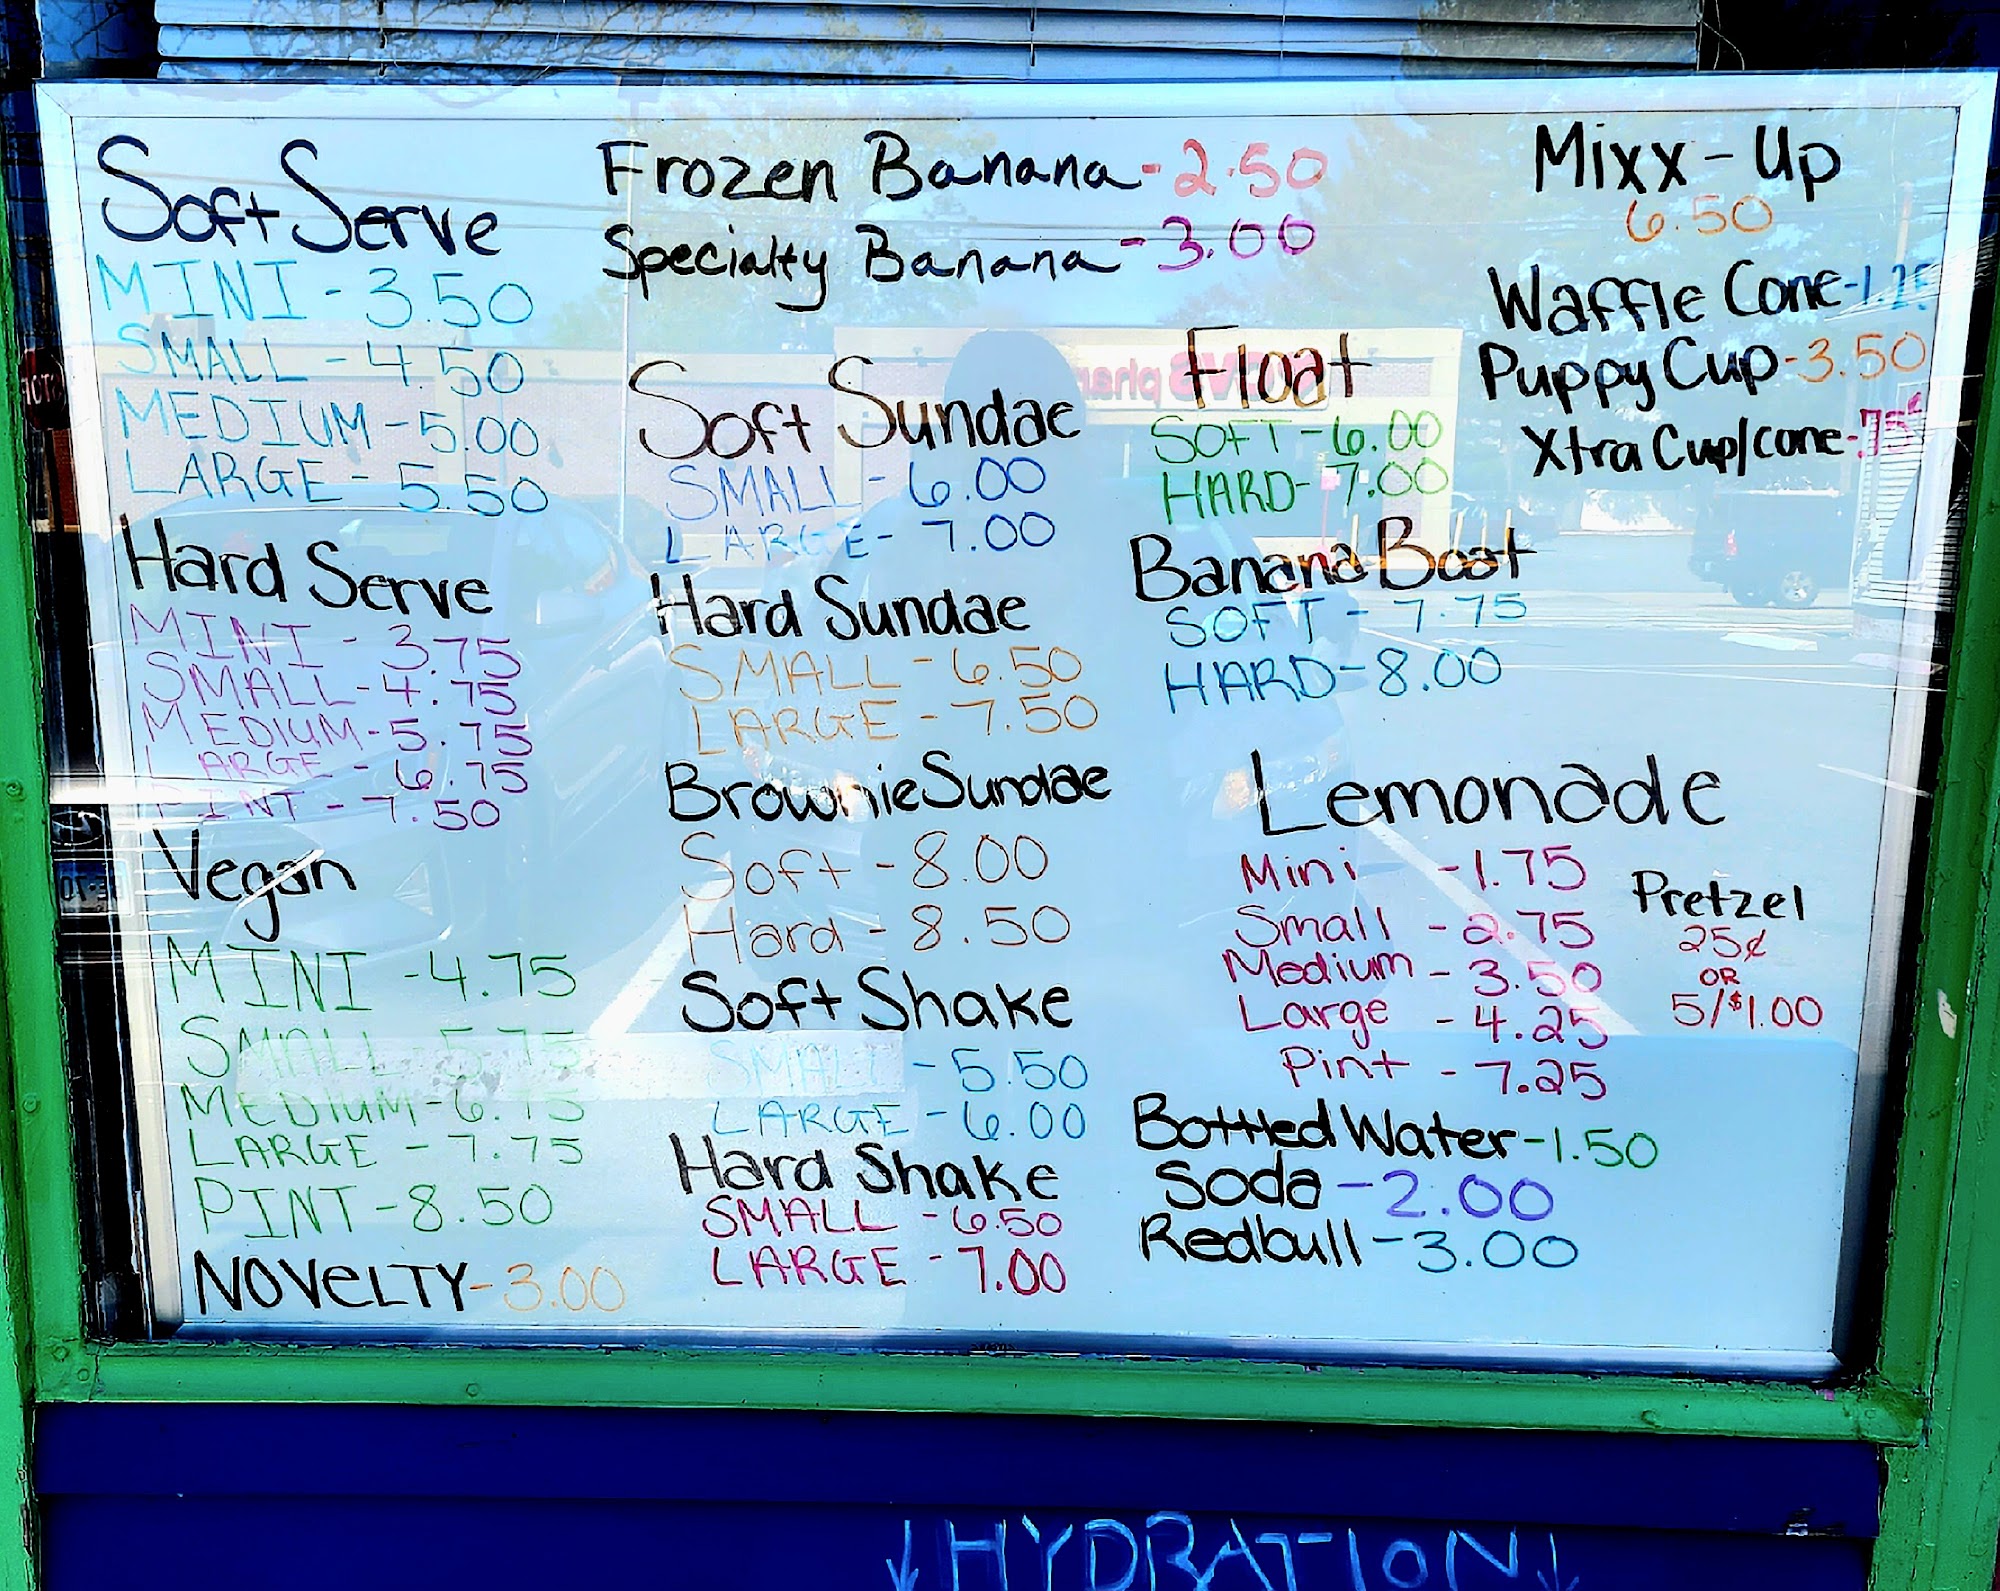 Soft Serve
MINI - 3.50
SMALL - 4.50
MEDIUM - 5.00
LARGE - 5.50
Hard Serve
MINI - 3.75
SMALL - 4.75
MEDIUM - 5.75
LARGE - 6.75
PINT - 7.50
Vegan
MINI - 4.75
SMALL - 5.75
MEDIUM - 6.75
LARGE - 7.75
PINT - 8.50
NOVELTY - 3.00
Frozen Banana - 2.50
Specialty Banana - 3.00
Soft Sundae
SMALL - 6.00
LARGE - 7.00
Hard Sundae
SMALL - 6.50
LARGE - 7.50
Brownie Sundae
Soft - 8.00
Hard - 8.50
Soft Shake
SMALL - 5.50
LARGE - 6.00
Hard Shake
SMALL - 6.50
LARGE - 7.00
Float
SOFT - 6.00
HARD - 7.00
Banana Boat
SOFT - 7.75
HARD - 8.00
Mixx - Up
6.50
Waffle Cone - 1.25
Puppy Cup - 3.50
Xtra Cup/cone - .75¢
Lemonade
Mini - 1.75
Small - 2.75
Medium - 3.50
Large - 4.25
Pint - 7.25
Pretzel
25¢
OR
5/$1.00
Bottled Water - 1.50
Soda - 2.00
Redbull - 3.00
↓HYDRATION↓
CVS phar
STOP